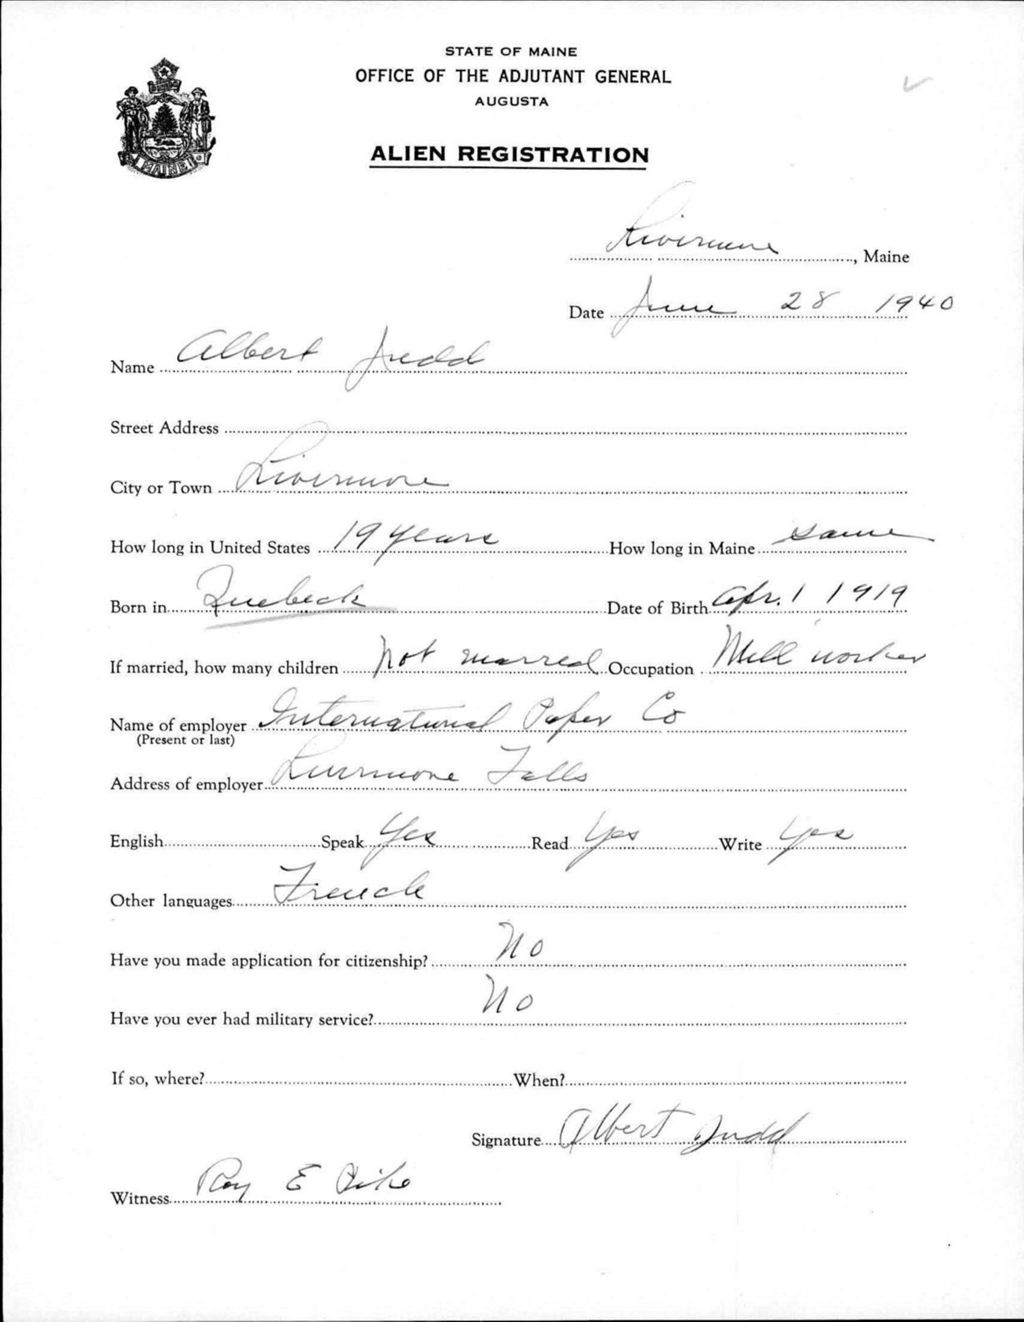 STATE OF MAINE
OFFICE OF THE ADJUTANT GENERAL
AUGUSTA
ALIEN REGISTRATION
MAINE
Livermore, Maine
Date June 28 1940
Name Albert Judd
Street Address
City or Town Livermore
How long in United States 19 years How long in Maine same
Born in Quebeck Date of Birth Apr. 1 1919
If married, how many children Not married Occupation Mill worker
Name of employer International Paper Co
(Present or last)
Address of employer Livermore Falls
English Speak Yes Read Yes Write Yes
Other languages French
Have you made application for citizenship? No
Have you ever had military service? No
If so, where? When?
Signature Albert Judd
Witness Roy E Pike